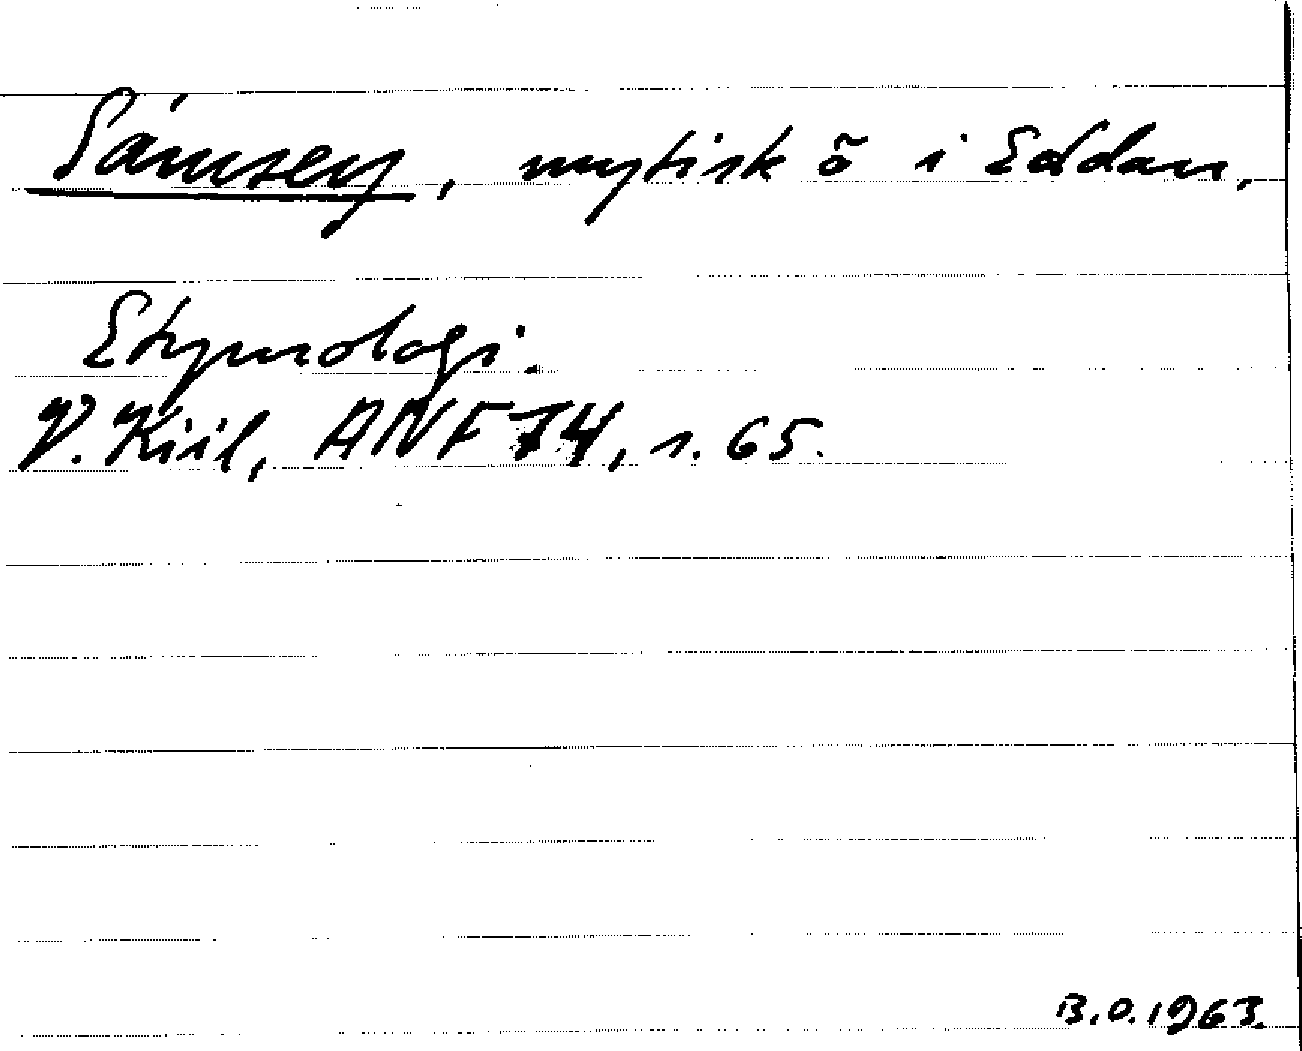 Sámsey, mytisk ö i Eddan,
Etymologi.
V. Kiil, ANF 74, s. 65.
B.O. 1963.